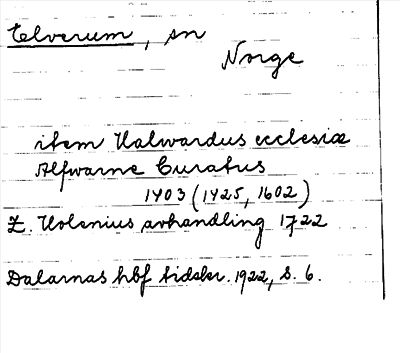 Elverum, sn
Norge
item Halwardus ecclesiæ
Alfwarne Curatus
1403 (1425, 1602)
Z. Holenius avhandling 1722
Dalarnas hbf tidskr. 1922, s. 6.